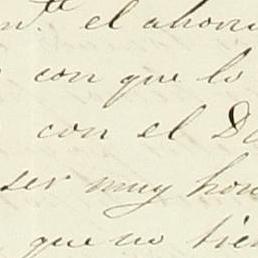 el ahor
con que lo
con el D
ser muy hon
que no tien